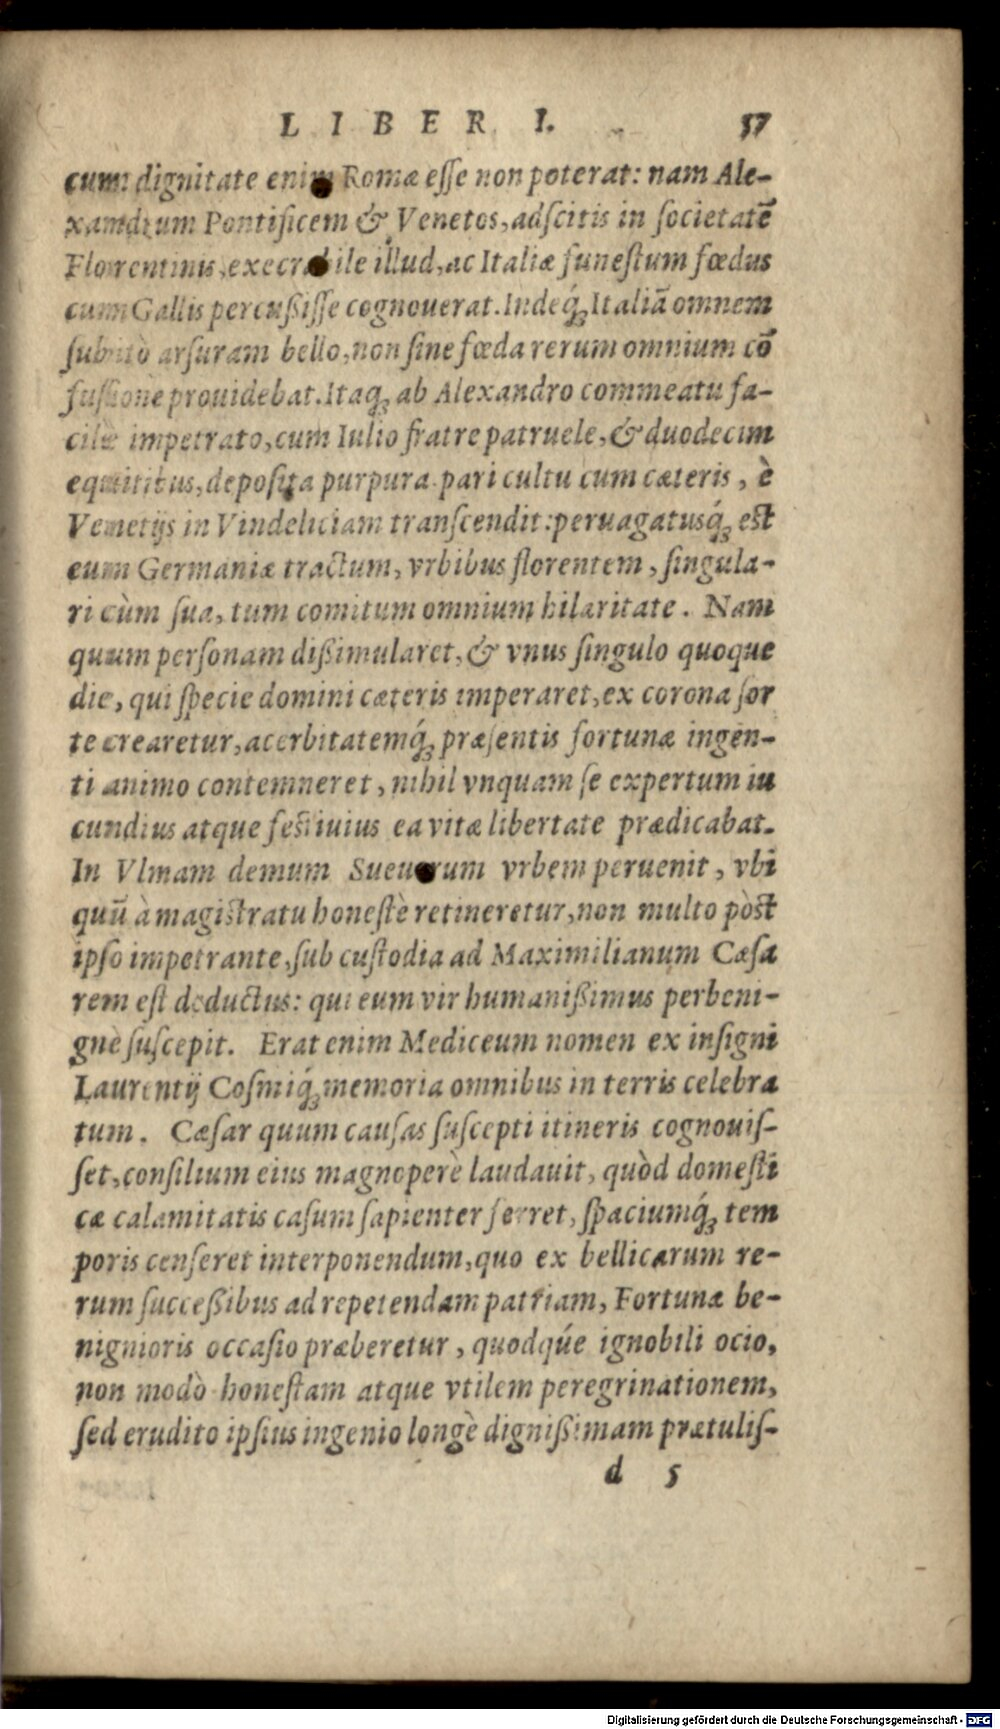 LIBER I. 57
cum dignitate enim Romæ eſſe non poterat: nam Ale-
xandrum Pontificem & Venetos, adſcitis in ſocietatē
Florentinis, execrabile illud, ac Italiæ funeſtum fœdus
cum Gallis percußiſſe cognouerat. Indeq́ꝫ Italiā omnem
ſubitò arſuram bello, non ſine fœda rerum omnium cō
fuſione prouidebat. Itaqꝫ ab Alexandro commeatu fa-
cilè impetrato, cum Iulio fratre patruele, & duodecim
equitibus, depoſita purpura pari cultu cum cæteris, è
Venetijs in Vindeliciam tranſcendit: peruagatusq́ꝫ est
eum Germaniæ tractum, vrbibus florentem, ſingula-
ri cùm ſua, tum comitum omnium hilaritate. Nam
quum perſonam dißimularet, & vnus ſingulo quoque
die, qui ſpecie domini cæteris imperaret, ex corona ſor
te crearetur, acerbitatemq́ꝫ præſentis fortunæ ingen-
ti animo contemneret, nihil vnquam ſe expertum iu
cundius atque feſtiuius ea vitæ libertate prædicabat.
In Vlmam demum Sueuorum vrbem peruenit, vbi
quū à magiſtratu honeſtè retineretur, non multo pòst
ipſo impetrante, ſub cuſtodia ad Maximilianum Cæſa
rem eſt deductus: qui eum vir humanißimus perbeni-
gnè ſuſcepit. Erat enim Mediceum nomen ex inſigni
Laurentij Coſmiq́ꝫ memoria omnibus in terris celebra
tum. Cæſar quum cauſas ſuſcepti itineris cognouiſ-
ſet, conſilium eius magnoperè laudauit, quòd domeſti
cæ calamitatis caſum ſapienter ferret, ſpaciumq́ꝫ tem
poris cenſeret interponendum, quo ex bellicarum re-
rum ſucceßibus ad repetendam patriam, Fortunæ be-
nignioris occaſio præberetur, quodqúe ignobili ocio,
non modò honeſtam atque vtilem peregrinationem,
ſed erudito ipſius ingenio longè digniſßimam prætuliſ-
d 5
Digitalisierung gefördert durch die Deutsche Forschungsgemeinschaft - DFG